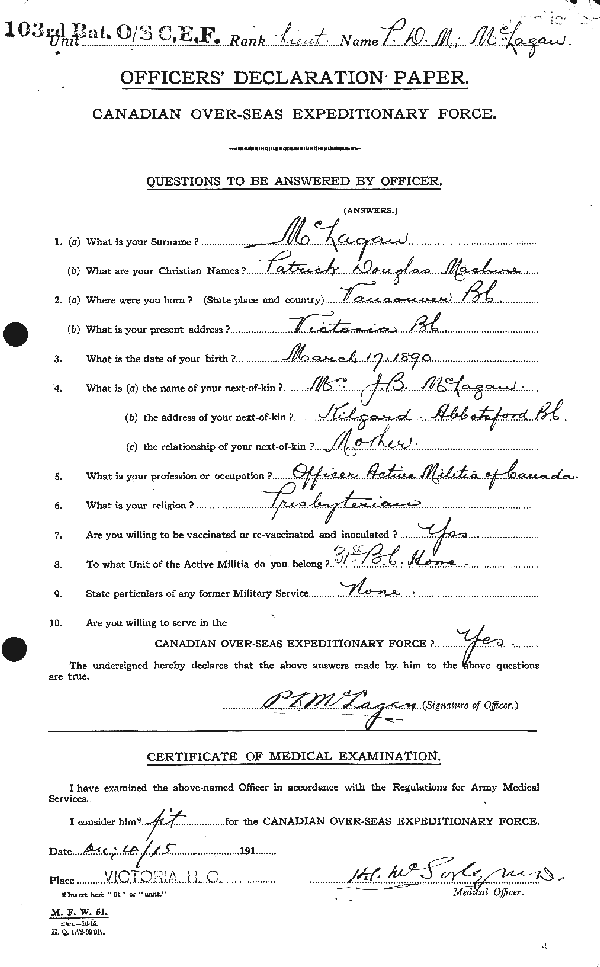 103rd Bat. O/S C.E.F. Unit Rank Lieut Name P. D. M. McLagan.
OFFICERS' DECLARATION PAPER.
CANADIAN OVER-SEAS EXPEDITIONARY FORCE.
QUESTIONS TO BE ANSWERED BY OFFICER.
(ANSWERS.)
1. (a) What is your Surname? McLagan
(b) What are your Christian Names? Patrick Douglas
2. (a) Where were you born? (State place and country) Vancouver BC
(b) What is your present address? Victoria BC
3. What is the date of your birth? March 17, 1890
4. What is (a) the name of your next-of-kin? Mrs J.B. McLagan.
(b) the address of your next-of-kin? Kilgard Abbotsford BC.
(c) the relationship of your next-of-kin? Mother
5. What is your profession or occupation? Officer Active Militia of Canada
6. What is your religion? Presbyterian
7. Are you willing to be vaccinated or re-vaccinated and inoculated? Yes
8. To what Unit of the Active Militia do you belong? 31st B.C. Horse
9. State particulars of any former Military Service None.
10. Are you willing to serve in the
CANADIAN OVER-SEAS EXPEDITIONARY FORCE? Yes
The undersigned hereby declares that the above answers made by him to the above questions
are true.
P D McLagan (Signature of Officer.)
CERTIFICATE OF MEDICAL EXAMINATION.
I have examined the above-named Officer in accordance with the Regulations for Army Medical
Services.
I consider him* fit for the CANADIAN OVER-SEAS EXPEDITIONARY FORCE.
Date /15 191
Place VICTORIA, B.C. M.D.
*Insert here "fit" or "unfit." Medical Officer.
M. F. W. 51.